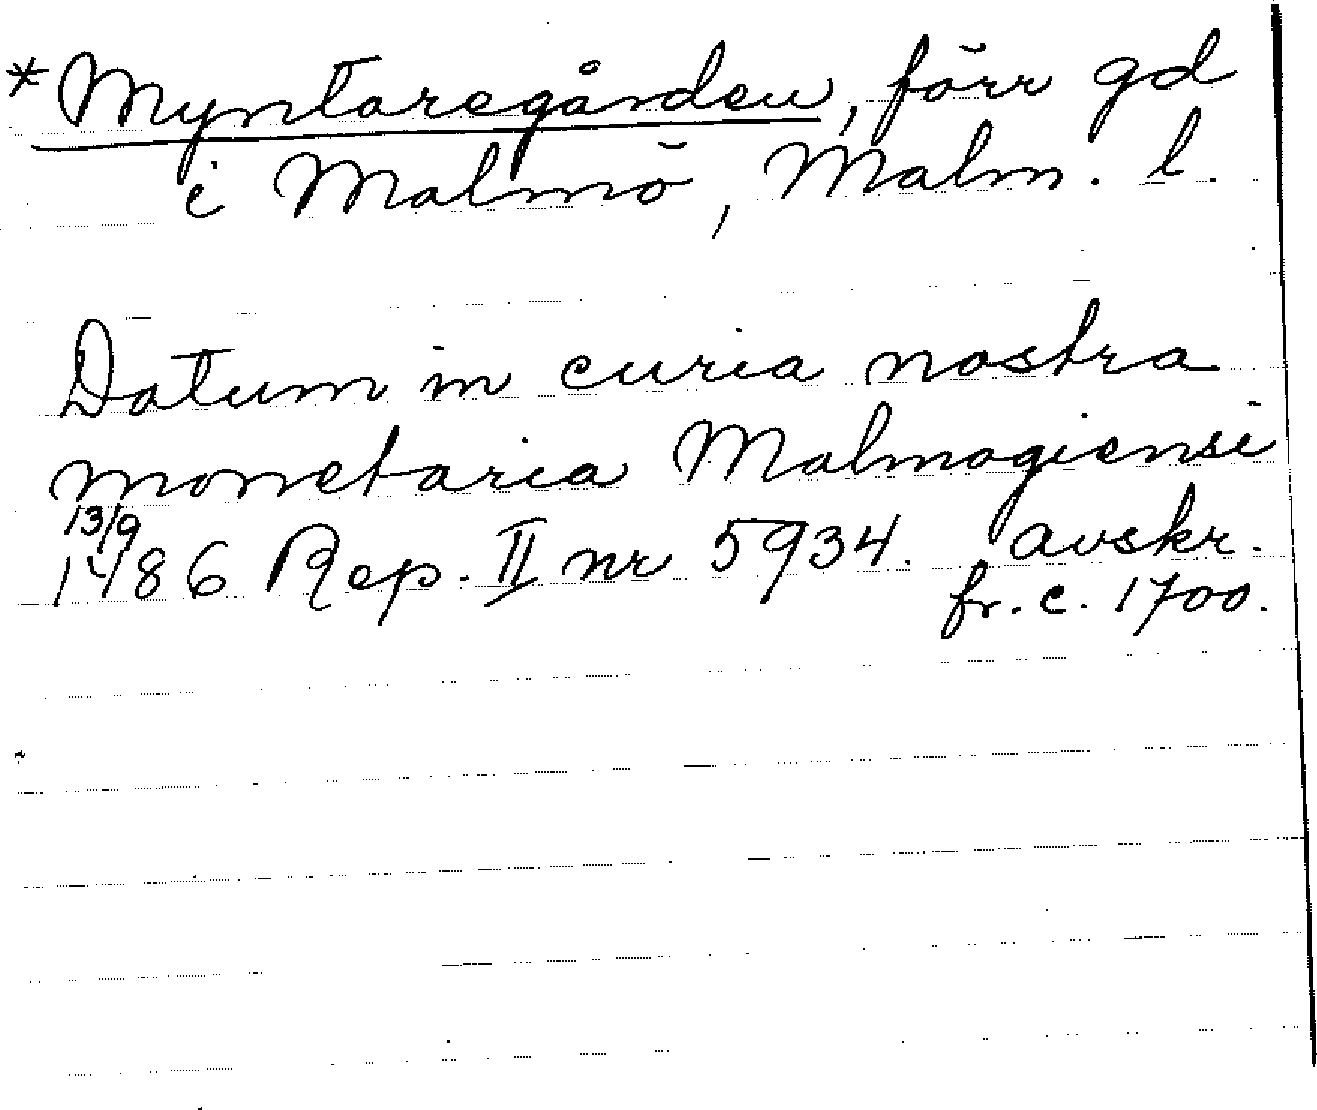 * Myntaregården, förr gd
i Malmö, Malm. l.
Datum in curia nostra
monetaria Malmogiensi
13/9
1486 Rep. II nr 5934. avskr.
fr. c. 1700.